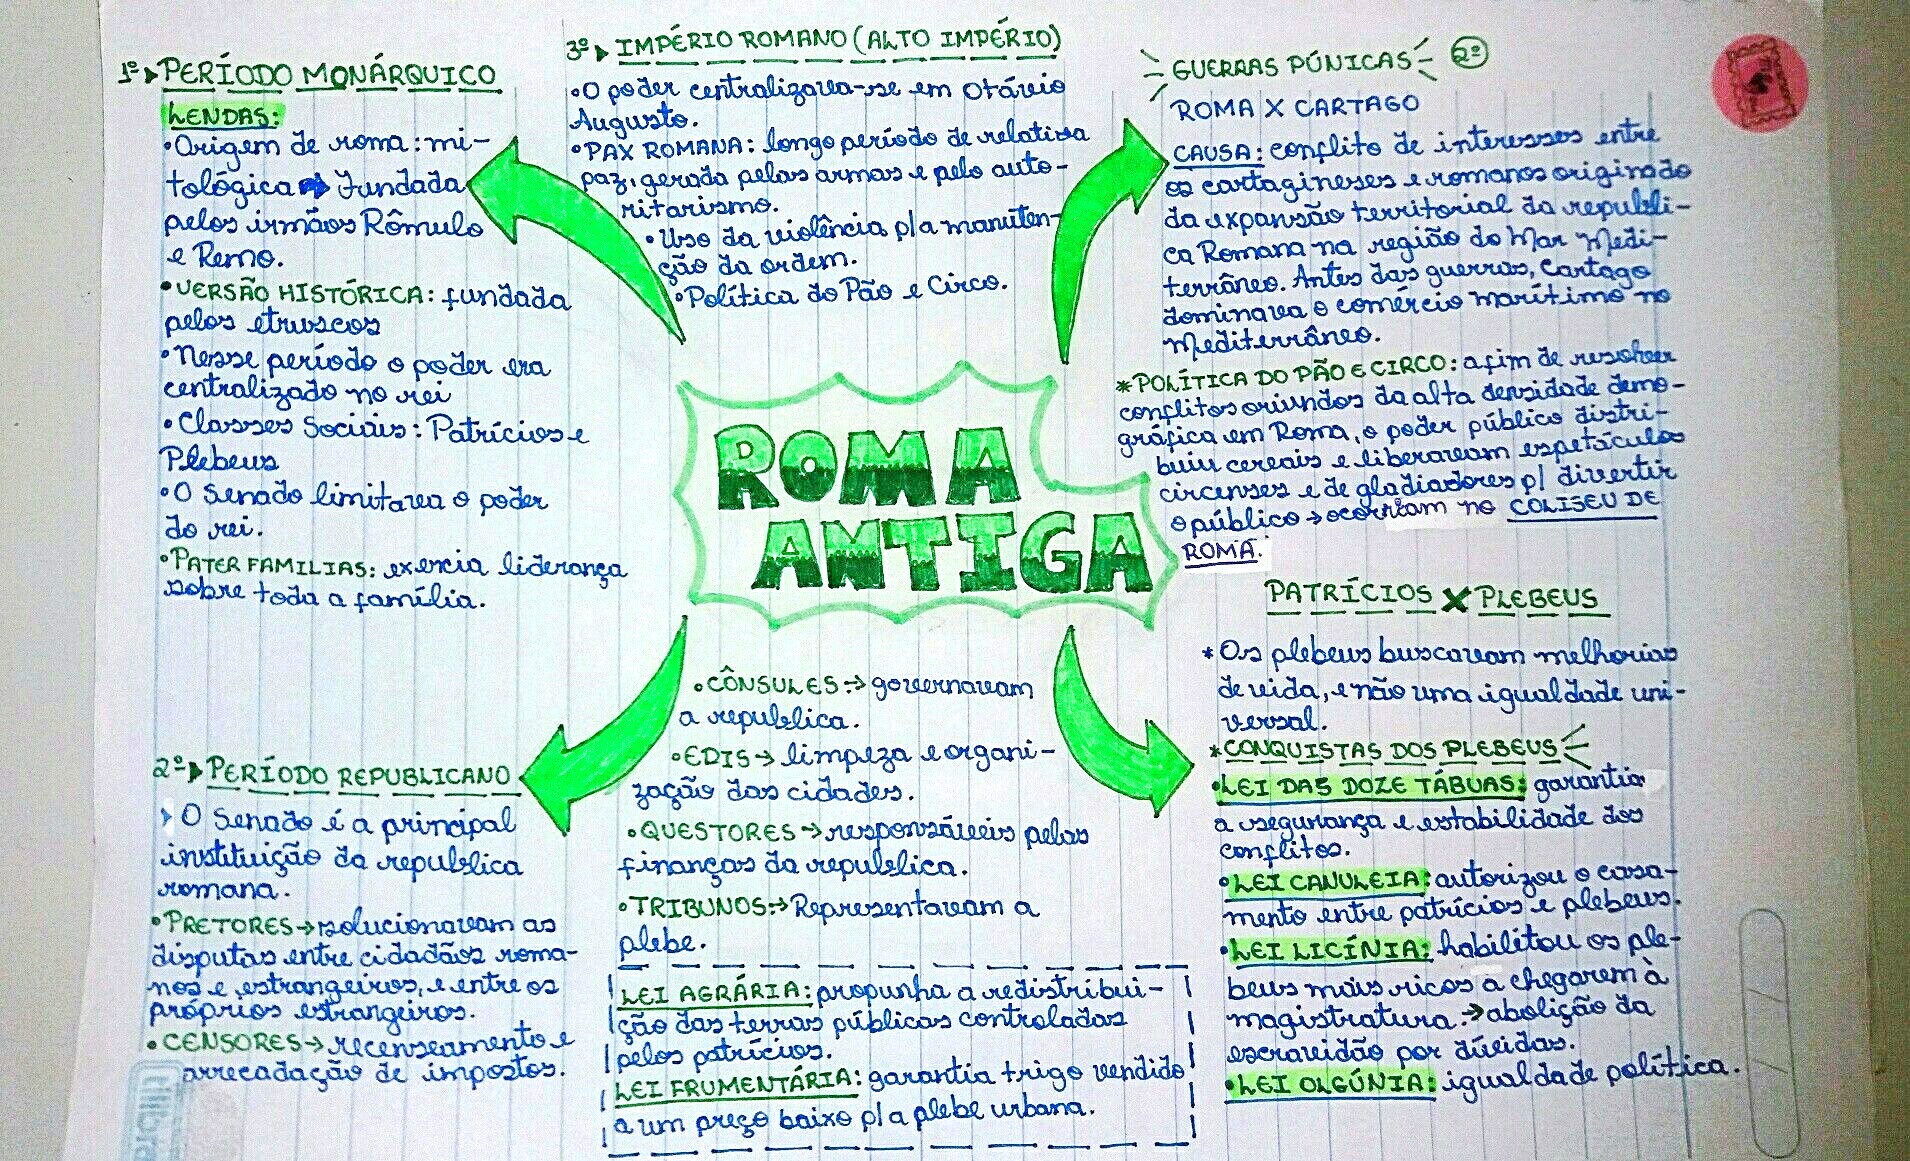 1º PERÍODO MONÁRQUICO
LENDAS:
•Origem de roma: mi-
tológica → Fundada
pelos irmãos Rômulo
e Remo.
•VERSÃO HISTÓRICA: fundada
pelos etruscos
•Nesse período o poder era
centralizado no rei
•Classes Sociais: Patrícios e
Plebeus
•O Senado limitava o poder
do rei.
•PATER FAMILIAS: exercia liderança
sobre toda a família.
3º IMPÉRIO ROMANO (ALTO IMPÉRIO)
•O poder centralizava-se em Otávio
Augusto.
•PAX ROMANA: longo período de relativa
paz, gerada pelas armas e pelo auto-
ritarismo.
•Uso da violência p/ a manuten-
ção da ordem.
•Política do Pão e Circo.
GUERRAS PÚNICAS 2º
ROMA X CARTAGO
CAUSA: conflito de interesses entre
os cartagineses e romanos originado
da expansão territorial da republi-
ca Romana na região do Mar Medi-
terrâneo. Antes das guerras, Cartago
dominava o comércio marítimo no
Mediterrâneo.
*POLÍTICA DO PÃO E CIRCO: a fim de resolver
conflitos oriundos da alta densidade demo-
gráfica em Roma, o poder público distri-
buiu cereais e liberavam espetáculos
circenses e de gladiadores p/ divertir
o público → ocorriam no COLISEU DE
ROMA.
ROMA
ANTIGA
2º PERÍODO REPUBLICANO
O Senado é a principal
instituição da republica
romana.
•PRETORES → solucionavam as
disputas entre cidadãos roma-
nos e estrangeiros, e entre os
próprios estrangeiros.
•CENSORES → recenseamento e
arrecadação de impostos.
•CÔNSULES → governavam
a republica.
•EDIS → limpeza e organi-
zação das cidades.
•QUESTORES → responsáveis pelas
finanças da republica.
•TRIBUNOS → Representavam a
plebe.
LEI AGRÁRIA: propunha a redistribui-
ção das terras públicas controladas
pelos patrícios.
LEI FRUMENTÁRIA: garantia trigo vendido
a um preço baixo p/ a plebe urbana.
PATRÍCIOS X PLEBEUS
*Os plebeus buscavam melhorias
de vida, e não uma igualdade uni-
versal.
*CONQUISTAS DOS PLEBEUS
•LEI DAS DOZE TÁBUAS: garantia
a segurança e estabilidade dos
conflitos.
•LEI CANULEIA: autorizou o casa-
mento entre patrícios e plebeus.
•LEI LICÍNIA: habilitou os ple-
beus mais ricos a chegarem à
magistratura. → abolição da
escravidão por dívidas.
•LEI OLGÚNIA: igualdade política.